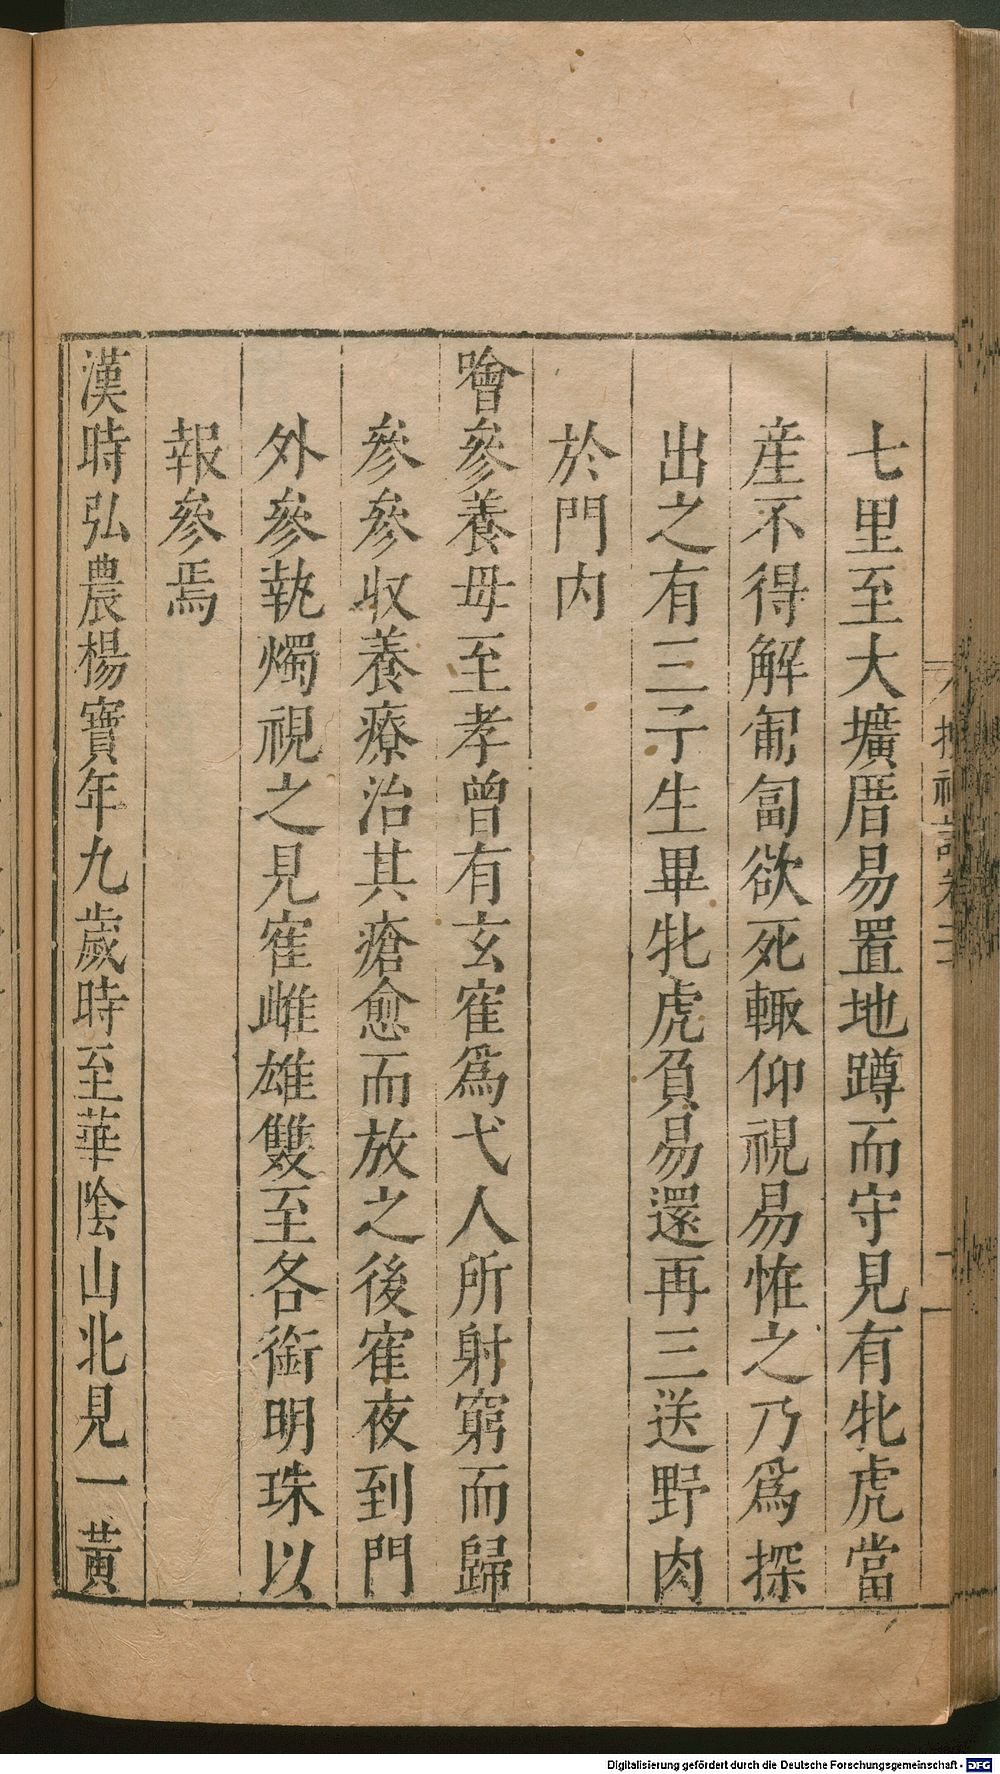 七里至大壙厝易置地蹲而守見有牝虎當
産不得解匍匐欲死輙仰視易恠之乃爲探
出之有三子生畢牝虎負易還再三送野肉
於門内
噲參養母至孝曾有玄寉爲弋人所射窮而歸
參參収養療治其瘡愈而放之後寉夜到門
外參執燭視之見寉雌雄雙至各銜明珠以
報參焉
漢時弘農楊寶年九歲時至華陰山北見一黃
Digitalisierung gefördert durch die Deutsche Forschungsgemeinschaft - DFG